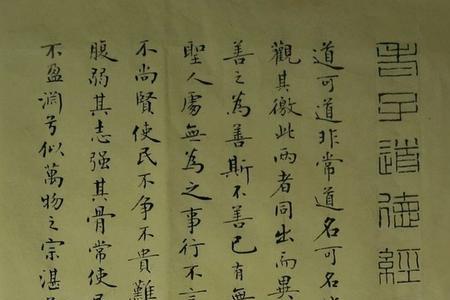 老子道德经
道可道非常道名可名
觀其徼此兩者同出而異
善之為善斯不善已有無
聖人處無為之事行不言
不尚賢使民不争不貴難
腹弱其志强其骨常使民
不盈渊兮似萬物之宗湛